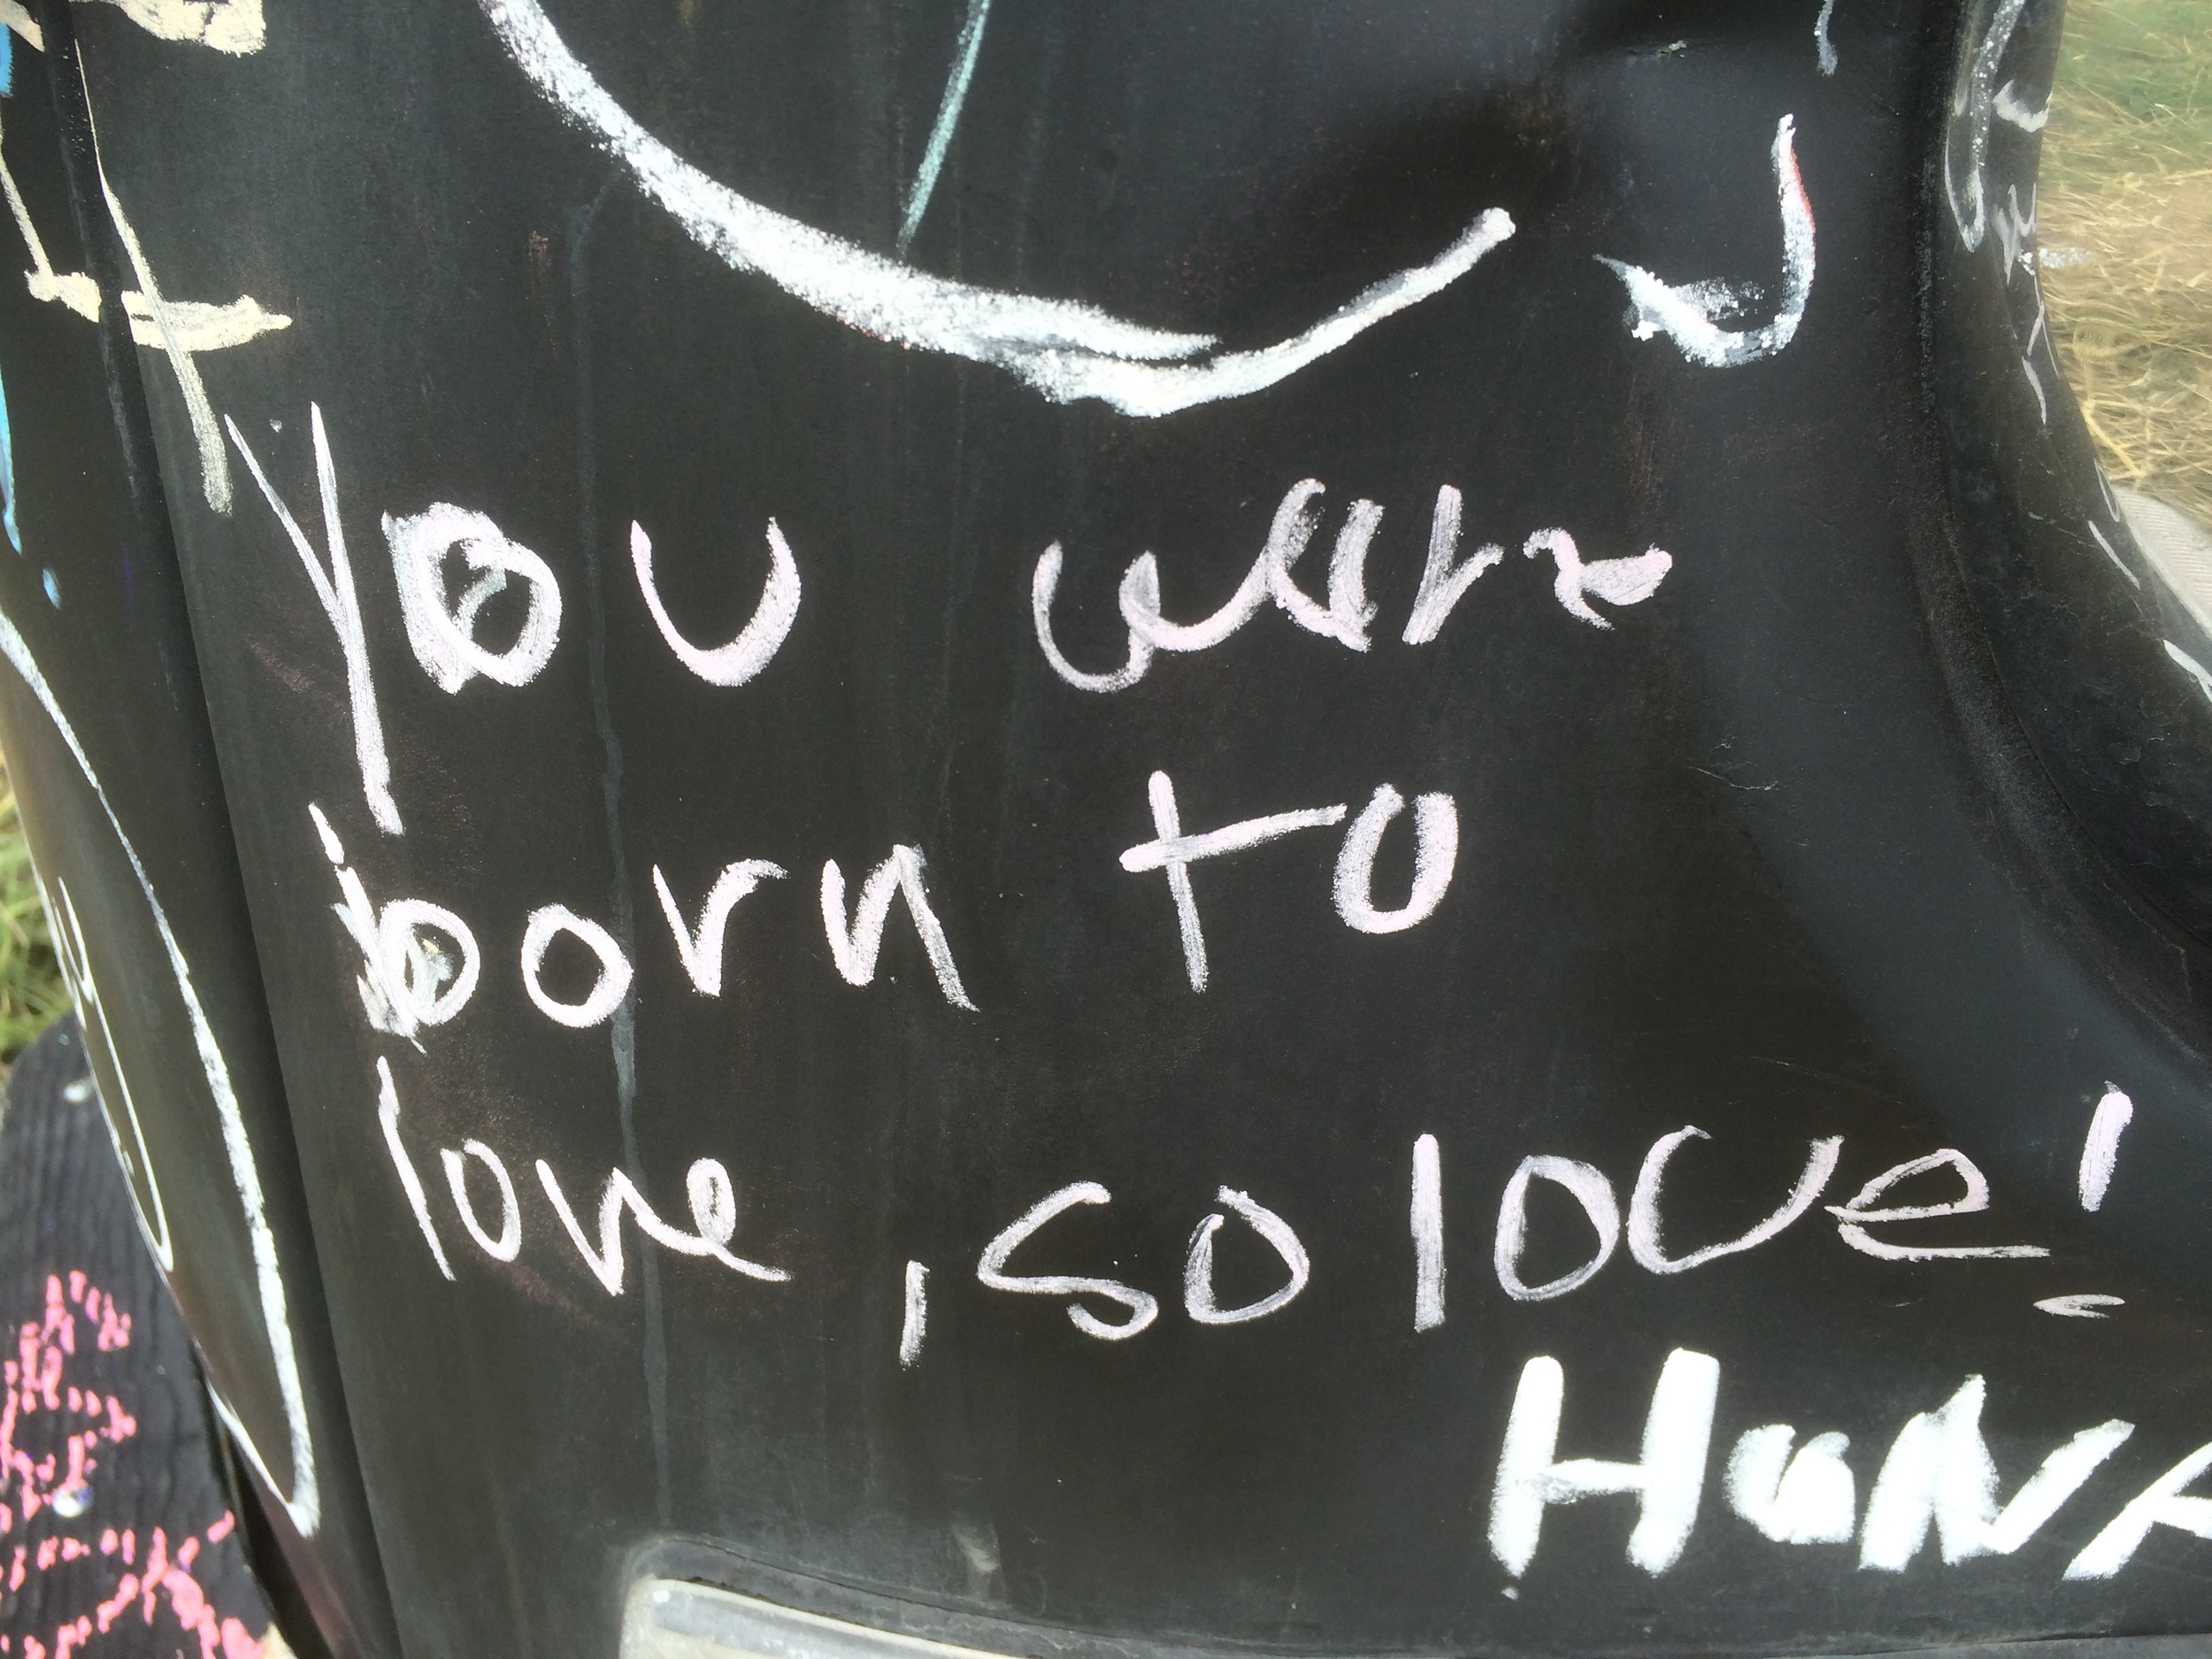 You were
born to
love, so love!